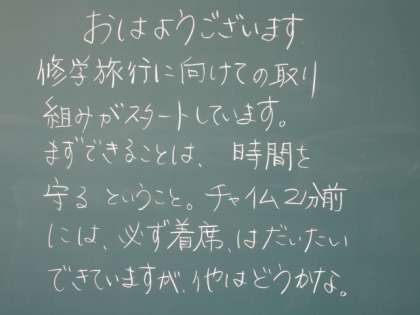 おはようございます
修学旅行に向けての取り
組みがスタートしています。
まずできることは、時間を
守るということ。チャイム2分前
には、必ず着席、はだいたい
できていますが、他はどうかな。